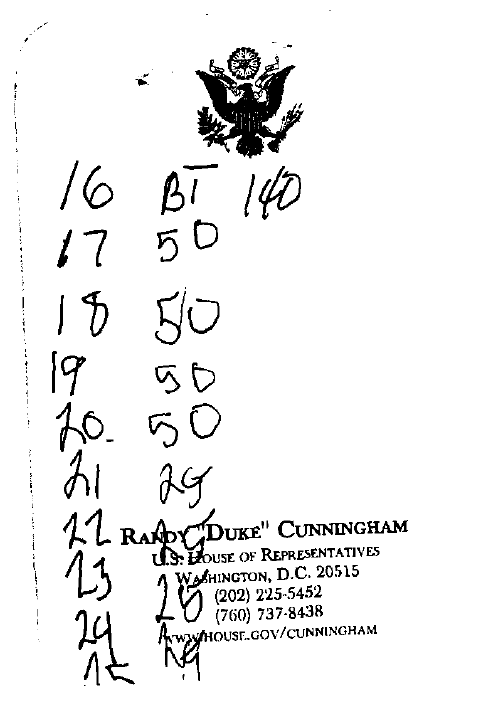 16 BT 140
17 50
18 50
19 50
20 50
21 25
22 25
RANDY "DUKE" CUNNINGHAM
U.S. HOUSE OF REPRESENTATIVES
23 25
WASHINGTON, D.C. 20515
(202) 225-5452
(760) 737-8438
24
WWW.HOUSE.GOV/CUNNINGHAM
25